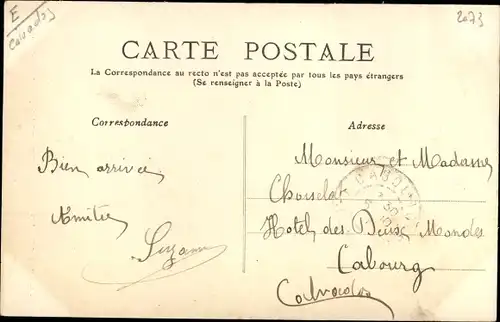 E
Calvados
2073
CARTE POSTALE
La Correspondance au recto n'est pas acceptée par tous les pays étrangers
(Se renseigner à la Poste)
Correspondance
Adresse
Bien arrivée
Amitiés
Suzanne
Monsieur et Madame
Choiselat
Hotel des Deux Mondes
Cabourg
Calvados
CABOURG